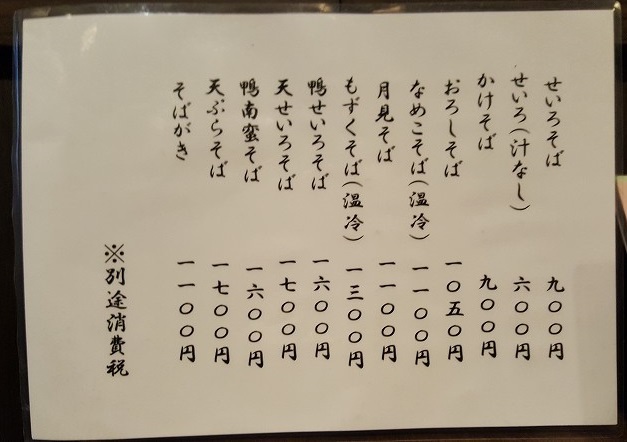 せいろそば 九〇〇円
せいろ(汁なし) 六〇〇円
かけそば 九〇〇円
おろしそば 一〇五〇円
なめこそば(温冷) 一一〇〇円
月見そば 一一〇〇円
もずくそば(温冷) 一三〇〇円
鴨せいろそば 一六〇〇円
天せいろそば 一七〇〇円
鴨南蛮そば 一六〇〇円
天ぷらそば 一七〇〇円
そばがき 一一〇〇円
※別途消費税